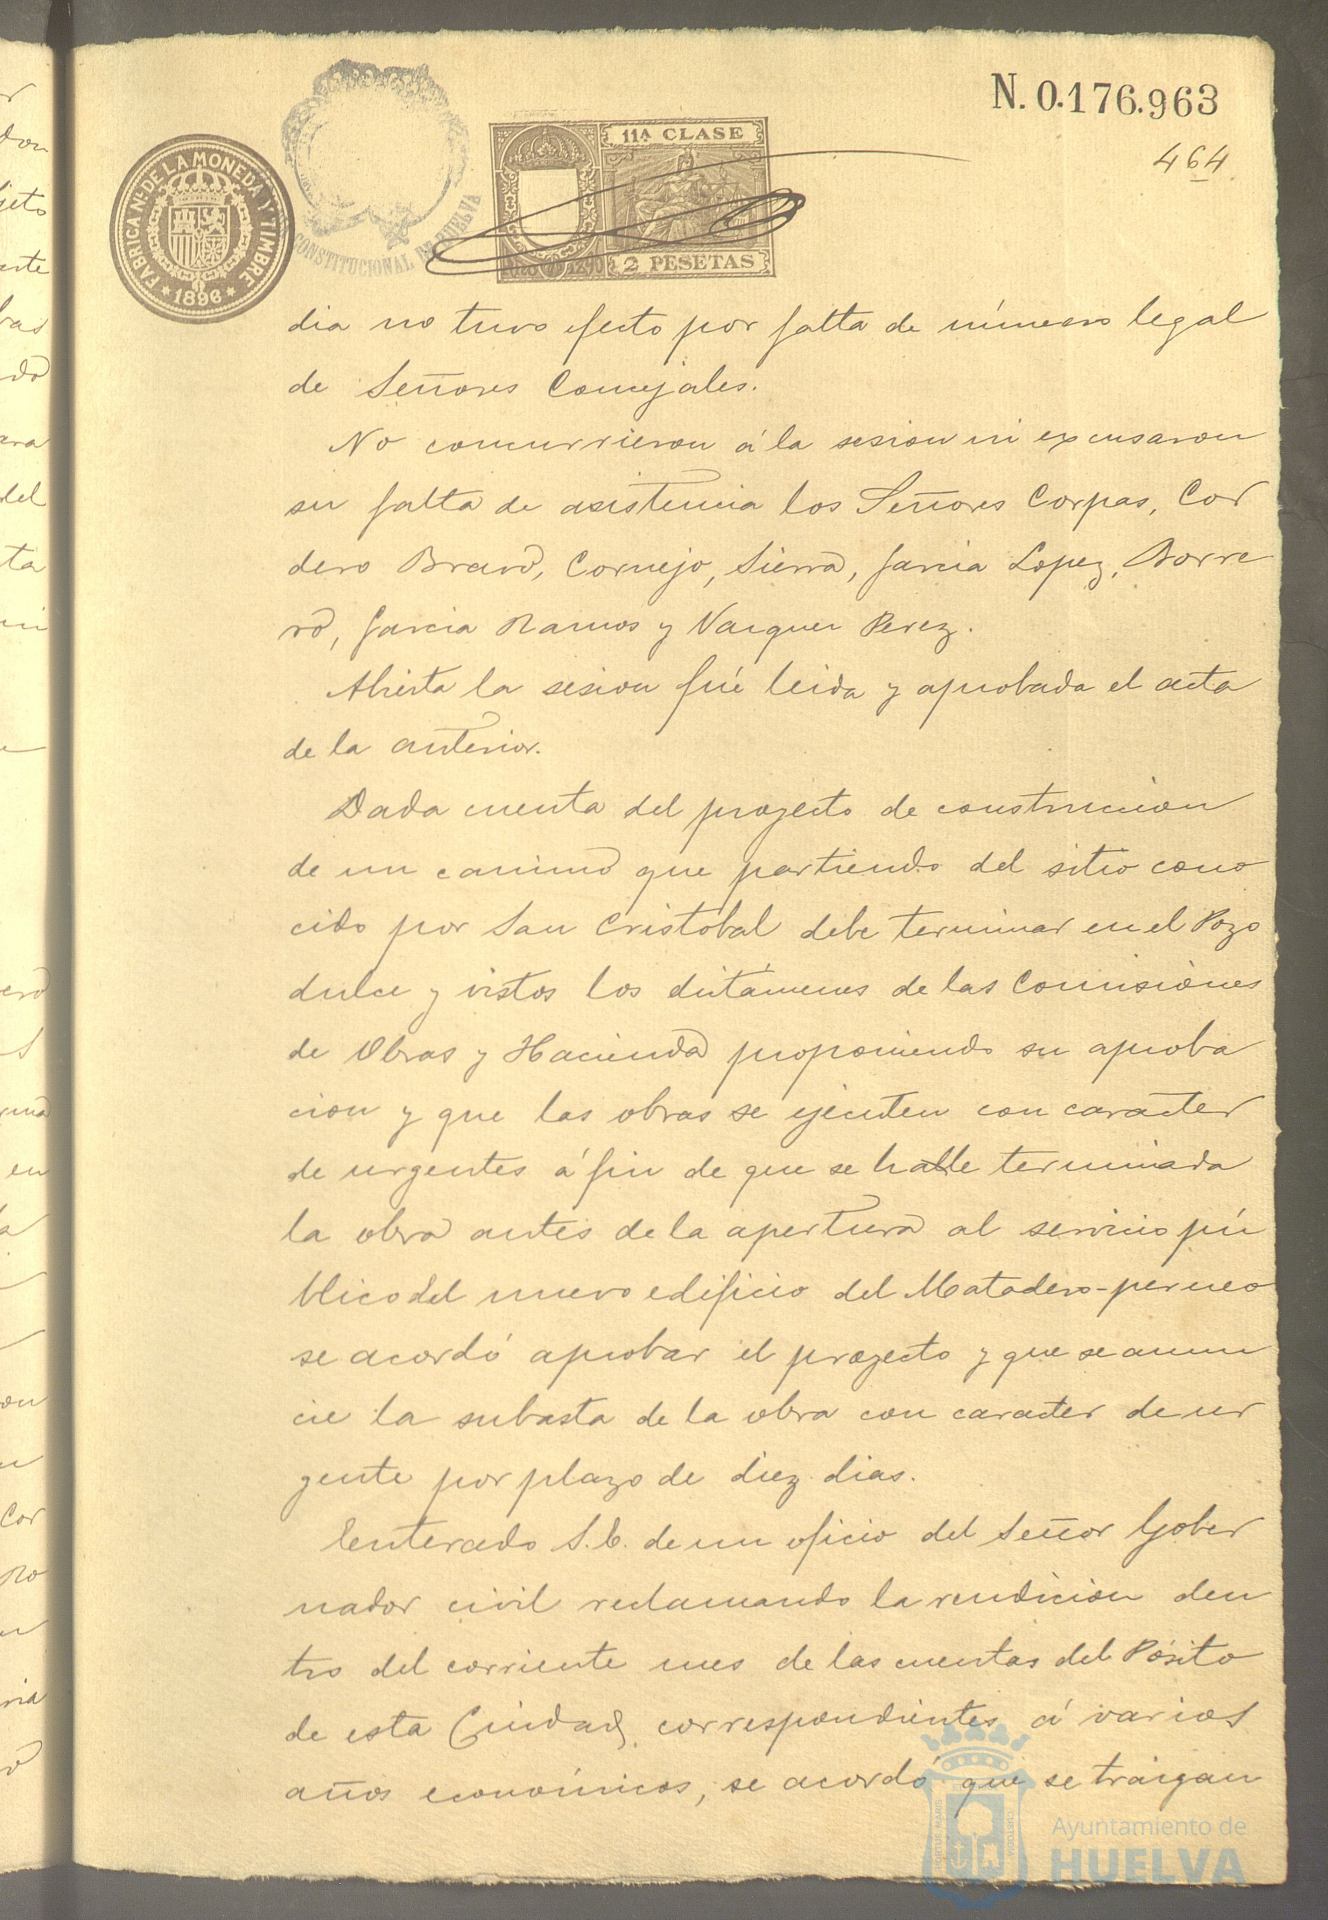 N. 0.176.963
464
FABRICA NAL DE LA MONEDA Y TIMBRE
* 1896 *
CONSTITUCIONAL DE HUELVA
11A CLASE
2 PESETAS
dia no tuvo efecto por falta de número legal
de Señores Concejales.
No concurrieron á la sesion ni excusaron
su falta de asistencia los Señores Corpas, Cor
dero Bravo, Cornejo, Sierra, Garcia Lopez, Borre
ro, Garcia Ramos y Vazquez Perez.
Abierta la sesion fué leida y aprobada el acta
de la anterior.
Dada cuenta del proyecto de construccion
de un camino que partiendo del sitio cono
cido por San Cristobal debe terminar en el Pozo
dulce y vistos los dictámenes de las Comisiones
de Obras y Hacienda proponiendo su aproba
cion y que las obras se ejecuten con caracter
de urgentes á fin de que se halle terminada
la obra antes de la apertura al servicio pú
blico del nuevo edificio del Matadero-perneo
se acordó aprobar el proyecto y que se anun
cie la subasta de la obra con caracter de ur
gente por plazo de diez dias.
Enterado S.E. de un oficio del Señor Gober
nador civil reclamando la rendicion den
tro del corriente mes de las cuentas del Pósito
de esta Ciudad, correspondientes á varios
años económicos, se acordó que se traigan
Ayuntamiento de
HUELVA